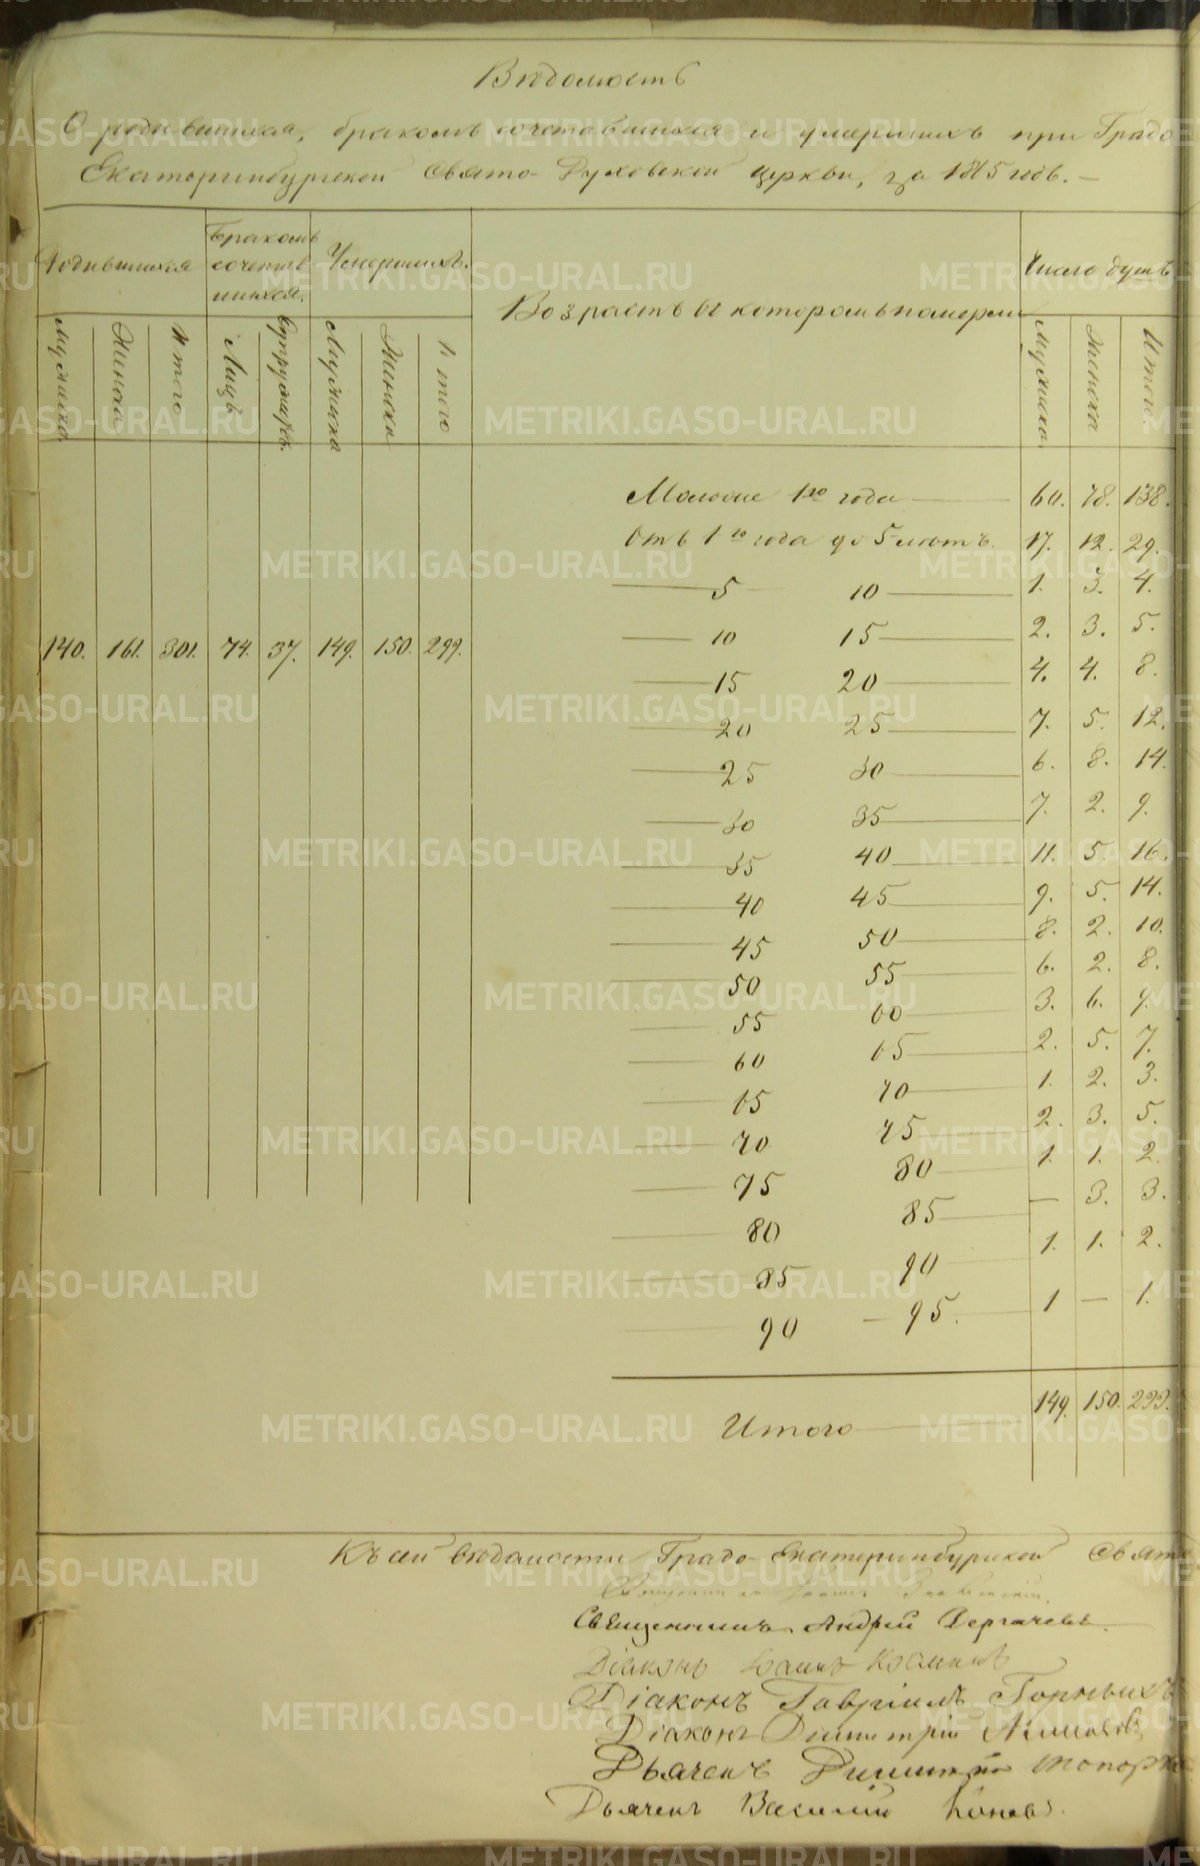 Вѣдомость
О родившихся, бракомъ сочетавшихся и умершихъ при Градо
Екатеринбургской Свято-Духовской церкви, за 1865 годъ.
Родившихся
Бракомъ сочетавшихся.
Умершихъ.
Возрастъ въ которомъ померли
Число душъ
Мужеска
Женска
Итого
Лицъ
Супружествъ.
Мужеска
Женска
Итого
Мужеска
Женска
Итого
140. 161. 301. 74. 37. 149. 150. 299.
Моложе 1го года 60. 78. 138.
Отъ 1го года до 5 лѣтъ. 17. 12. 29.
5 10 1. 3. 4.
10 15 2. 3. 5.
15 20 4. 4. 8.
20 25 7. 5. 12.
25 30 6. 8. 14.
30 35 7. 2. 9.
35 40 11. 5. 16.
40 45 9. 5. 14.
45 50 8. 2. 10.
50 55 6. 2. 8.
55 60 3. 6. 9.
60 65 2. 5. 7.
65 70 1. 2. 3.
70 75 2. 3. 5.
75 80 1. 1. 2.
80 85 — 3. 3.
85 90 1. 1. 2.
90 — 95. 1 — 1.
Итого 149. 150. 299.
Къ сей вѣдомости Градо-Екатеринбургской Свято
Священникъ Андрей Дергачевъ.
Діаконъ
Діаконъ Гавріилъ Горныхъ
Діаконъ Димитрій
Дьячекъ Димитрій Топорк
Дьячекъ Василій Коневъ.
METRIKI.GASO-URAL.RU